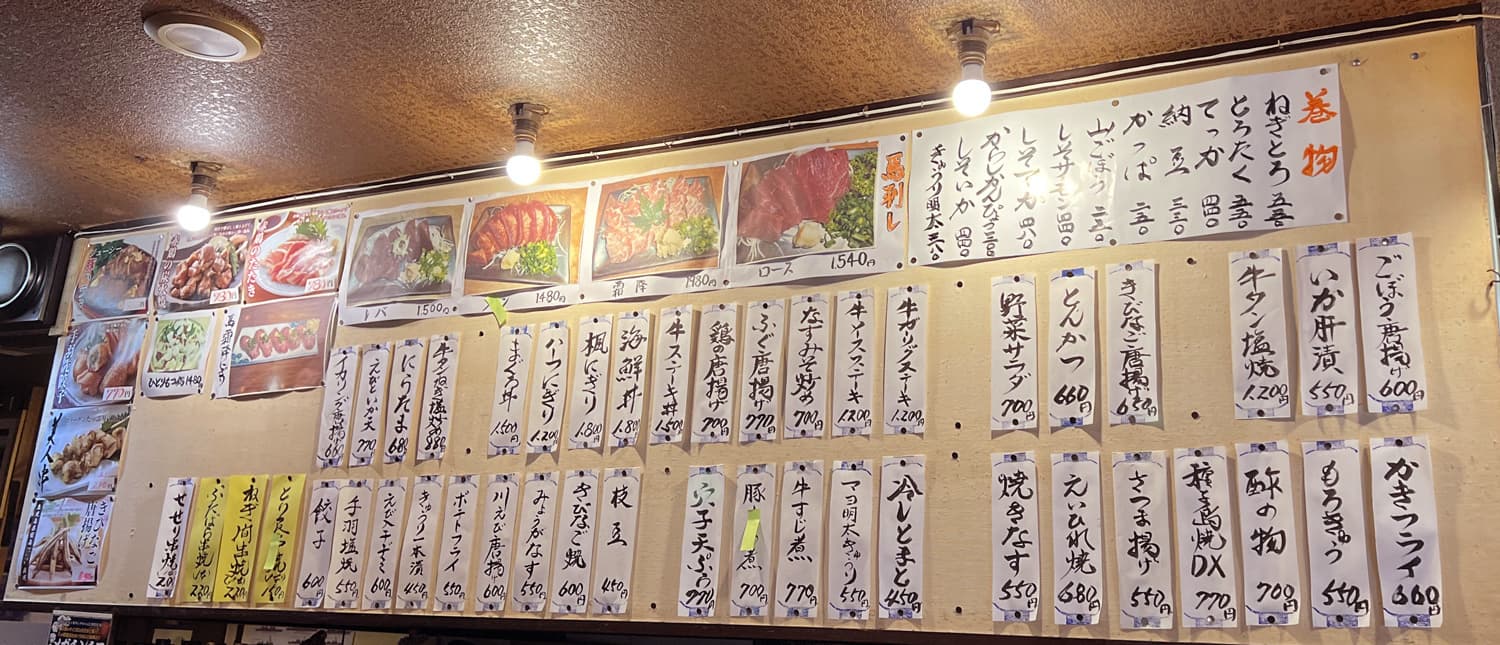 巻物
ねぎとろ 五五〇
とろたく 五五〇
てっか 四四〇
納豆 三三〇
かっぱ 二五〇
山ごぼう 二五〇
しそサーモン 四四〇
しそてっか 四八〇
からしかんぴょう 三五〇
しそいか 四四〇
きゅうり明太 三八〇
馬刺し
ロース 1,540円
霜降 1980円
1480円
レバ 1,500円
ひとりもつ鍋 1480
ごぼう唐揚げ 600円
いか肝漬 550円
牛タン塩焼 1,200円
きびなご唐揚げ 650円
とんかつ 660円
野菜サラダ 700円
牛ガーリックステーキ 1,200円
牛イスステーキ 1,200円
なすみそ炒め 700円
ふぐ唐揚げ 770円
鶏の唐揚げ 700円
牛ステーキ丼 1,500円
海鮮丼 1,800円
楓にぎり 1,800円
ハーフにぎり 1,200円
まぐろ丼 1,500円
牛タンねぎ塩炒め 880円
にらたま 680円
えびといか天 770円
イカゲソ唐揚げ 660円
かきフライ 660円
もろきゅう 550円
酢の物 700円
種子島焼DX 770円
さつま揚げ 550円
えいひれ焼 680円
焼きなす 550円
冷しとまと 450円
マヨ明太きゅうり 550円
牛すじ煮 770円
豚 煮 700円
穴子天ぷら 770円
枝豆 450円
きびなご焼 600円
みょうがなす 550円
川えび唐揚げ 600円
ポテトフライ 550円
きゅうり一本漬 450円
えび入ギョーザ 600円
手羽塩焼 550円
餃子 600円
とり皮
ねぎ間串焼 220円
ぶたばら串焼 220円
せせり串焼
きびなご唐揚げ